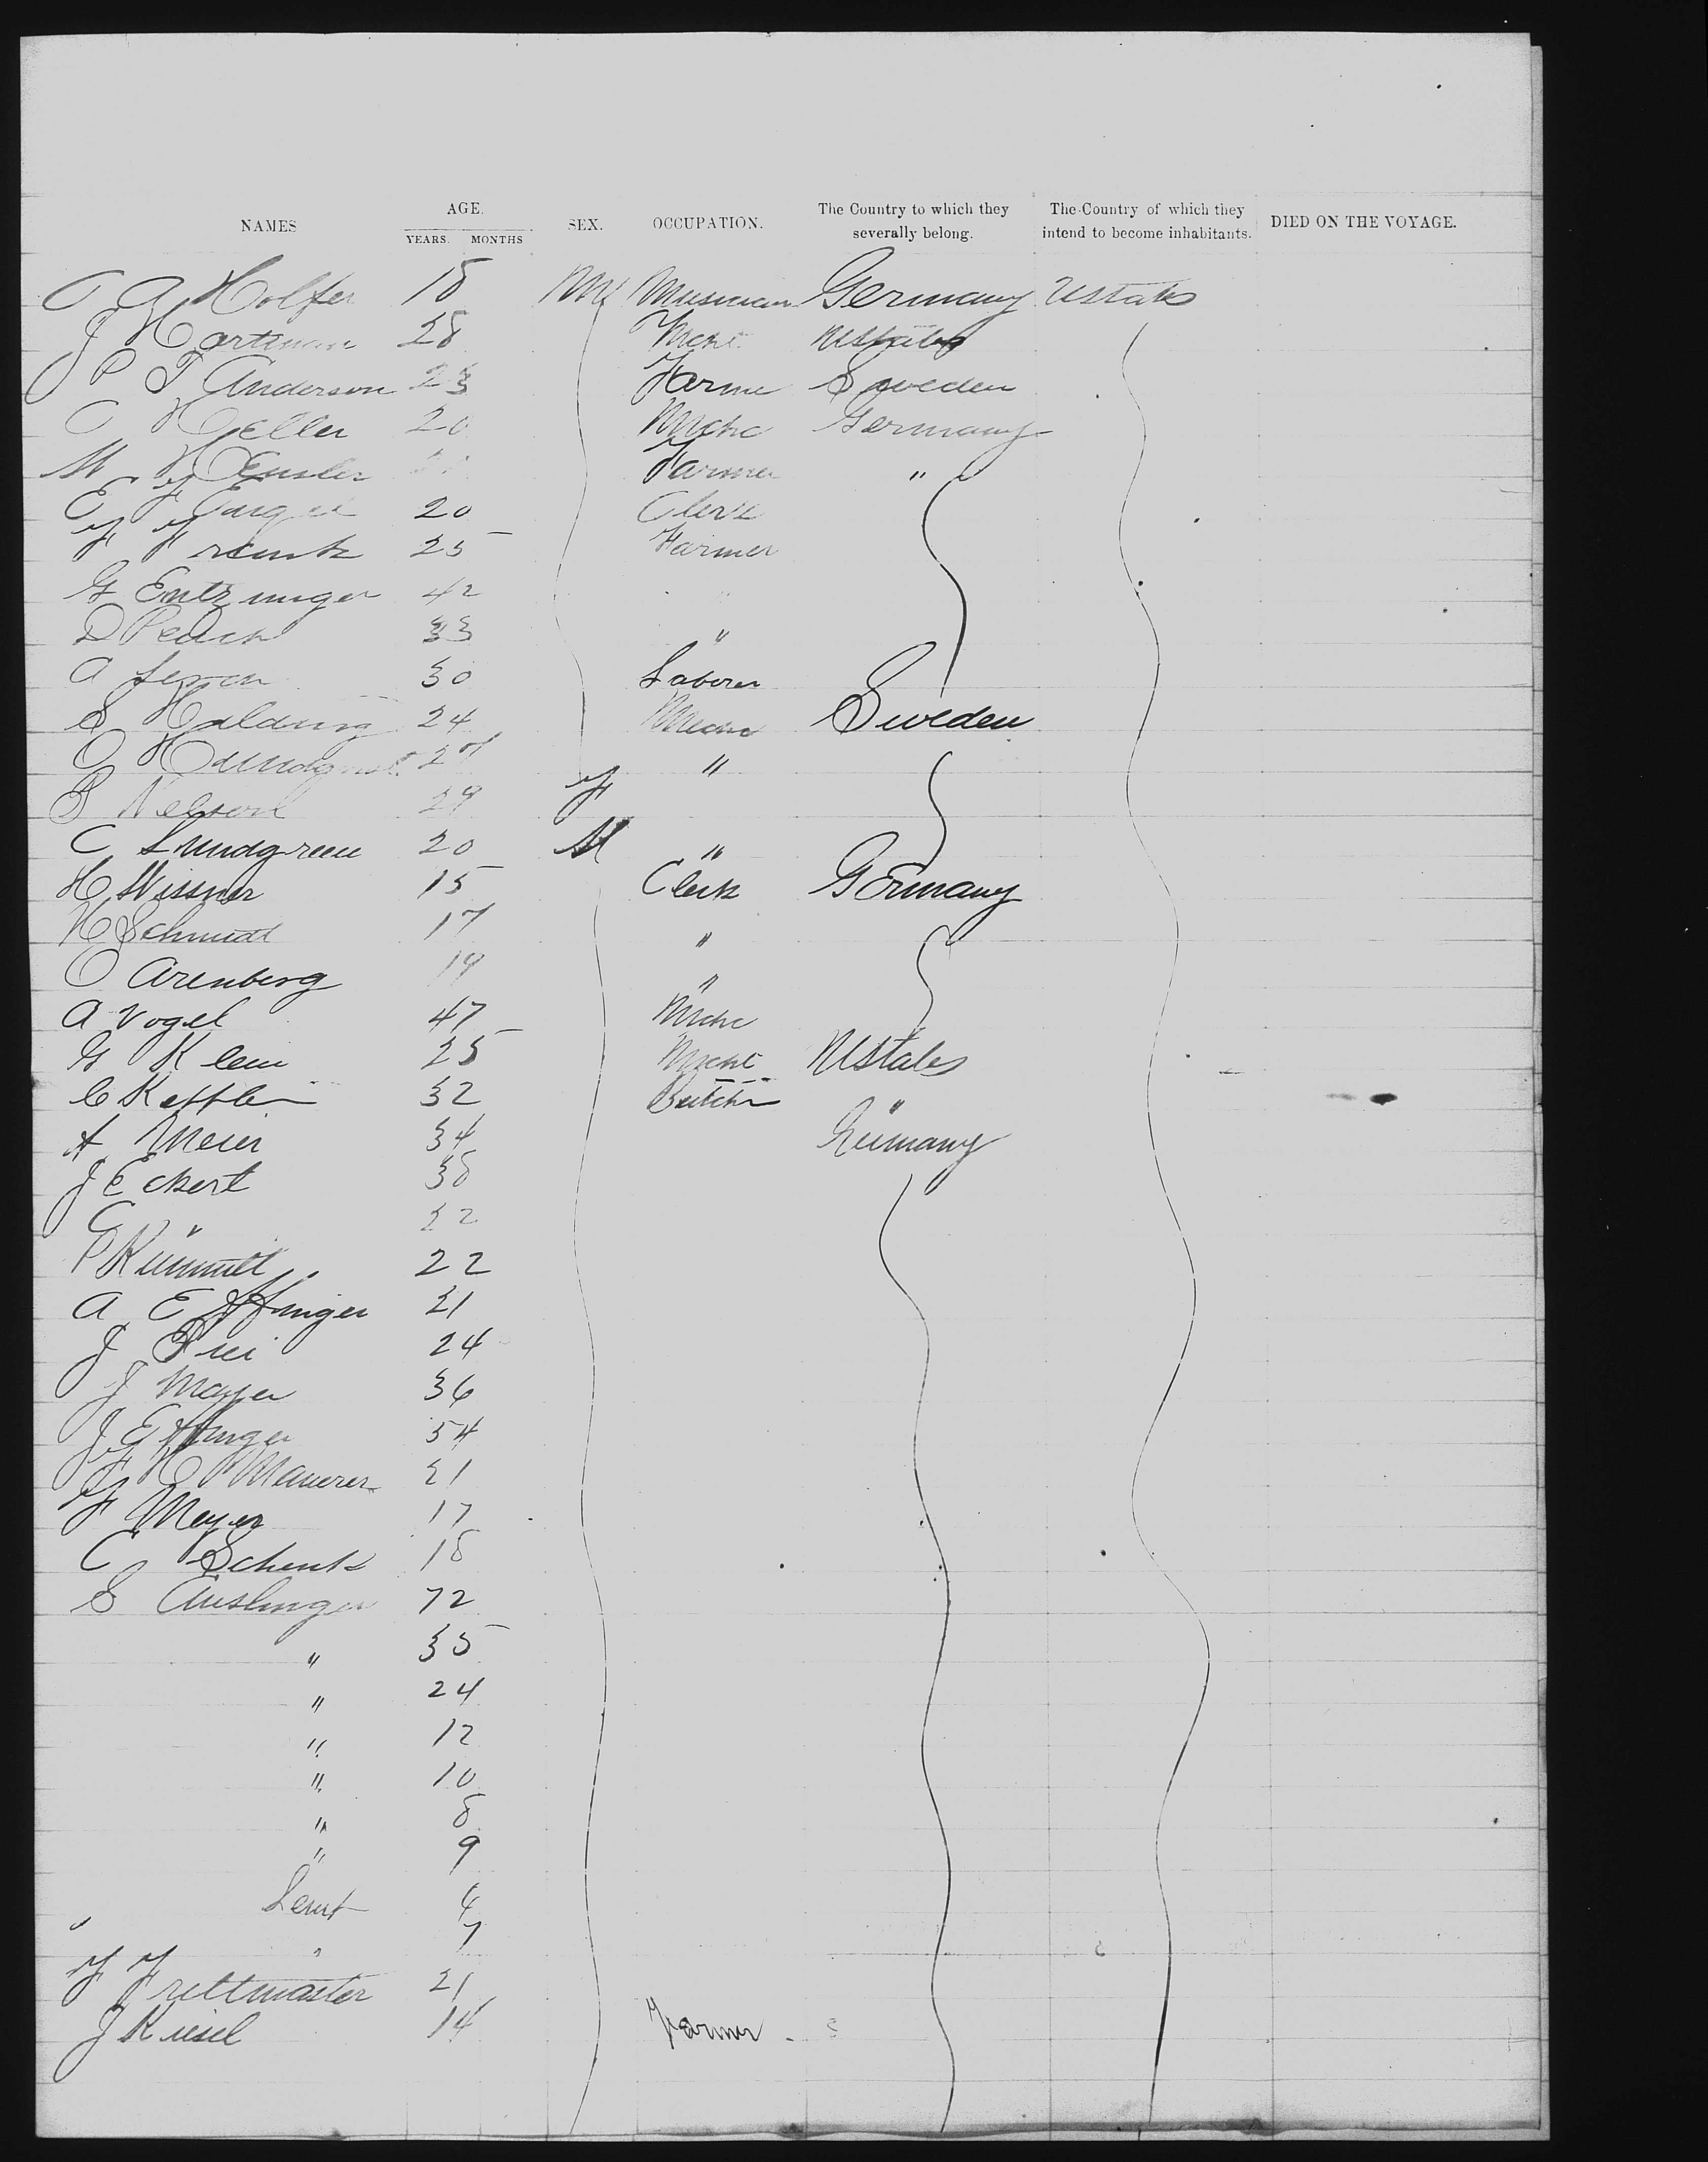 NAMES AGE. YEARS. MONTHS SEX. OCCUPATION. The Country to which they severally belong. The Country of which they intend to become inhabitants. DIED ON THE VOYAGE.
C A Holfer 18 M Musician Germany Ustates
J Hartman 28 Mcht Ustates
P T Anderson 23 Farme Sweden
C Heller 20 Mcht Germany
M Hensler Farmer "
E Engel 20 Clerk
F Frank 25 Farmer
G Entzminger 42
D Peach 33 "
A 30 Laborer
S Halding 24 Mechc Sweden
O 27 "
B Nelson 29 F
C Lundgreen 20 M "
H Wissner 15 Clerk Germany
H Schmidt 17 "
O Arenberg 19 "
A Vogel 47 Mechc
G Klein 25 Mcht Ustates
C Keppler 32 Butchr "
A Meier 34 Germany
J Eckert 38
C " 22
P Kümmel 22
A Effinger 21
J Frei 24
J Mayer 36
J Effinger 54
F H Maurer 21
F Meyer 17
C Schenk 18
S Auslinger 72
" 35
" 24
" 12
" 10
" 8
" 9
4
" " 7
F Frettmaster 21
J Kiesel 14 Farmer